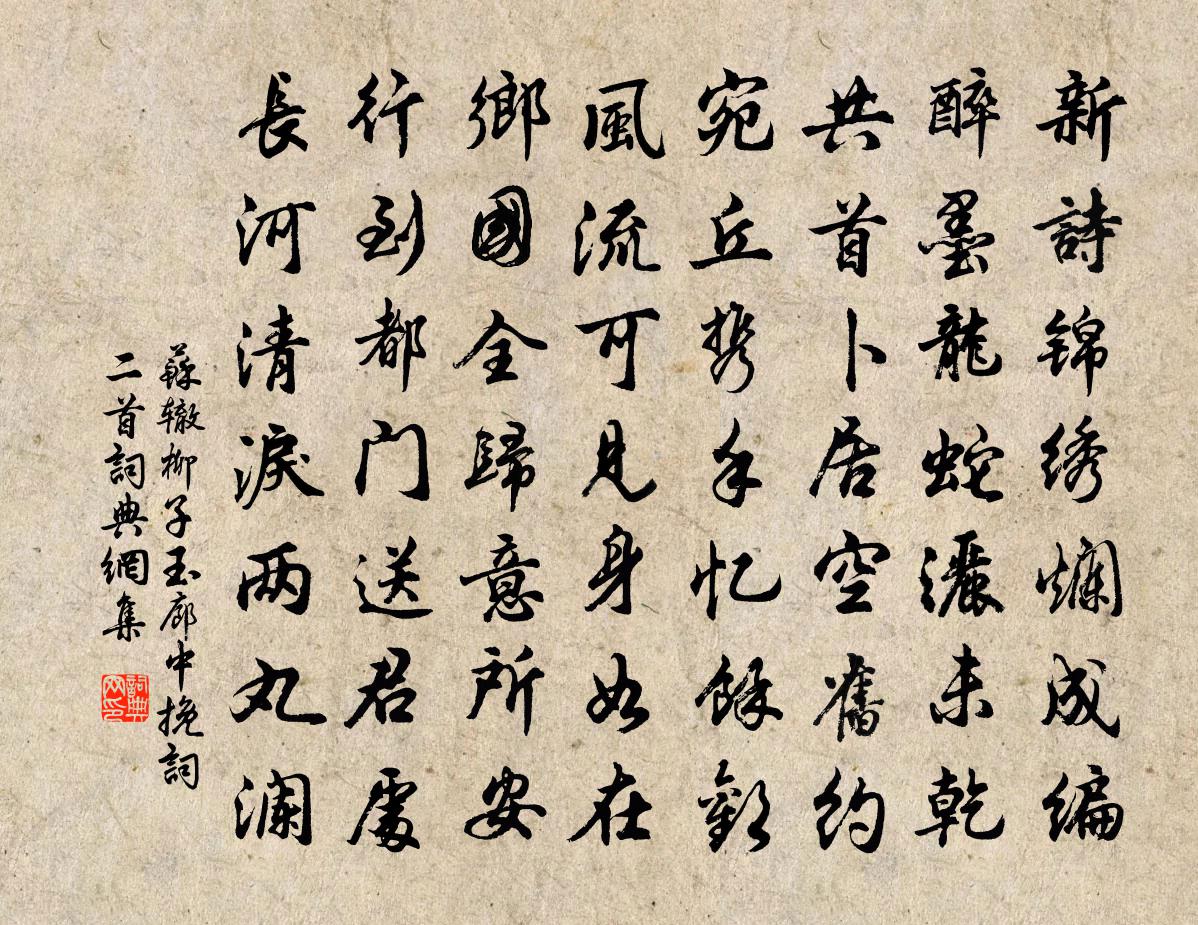 新詩锦绣爛成编
醉墨龍蛇灑未乾
共首卜居空舊約
宛丘携手忆餘歡
風流可見身如在
鄉國全歸意所安
行到都门送君處
長河清淚两丸澜
蘇辙柳子玉廊中挽詞
二首詞典網集
詞典
网印